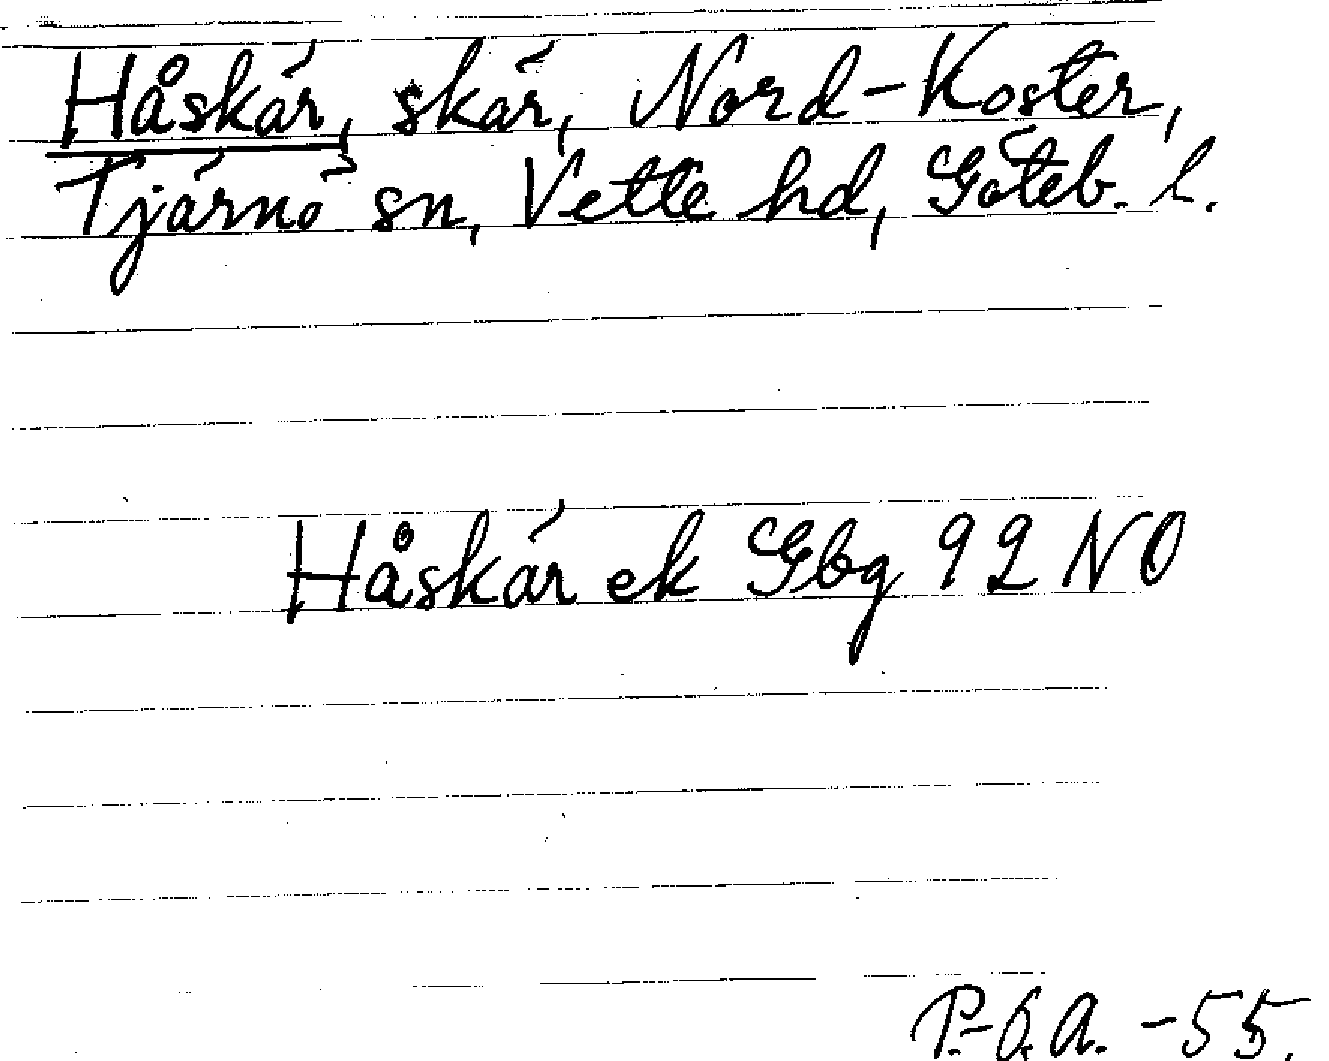 Håskär, skär, Nord-Koster,
Tjärnö sn, Vette hd, Göteb. l.
Håskär ek Gbg 92 NO
P.-Ö.A. -55.